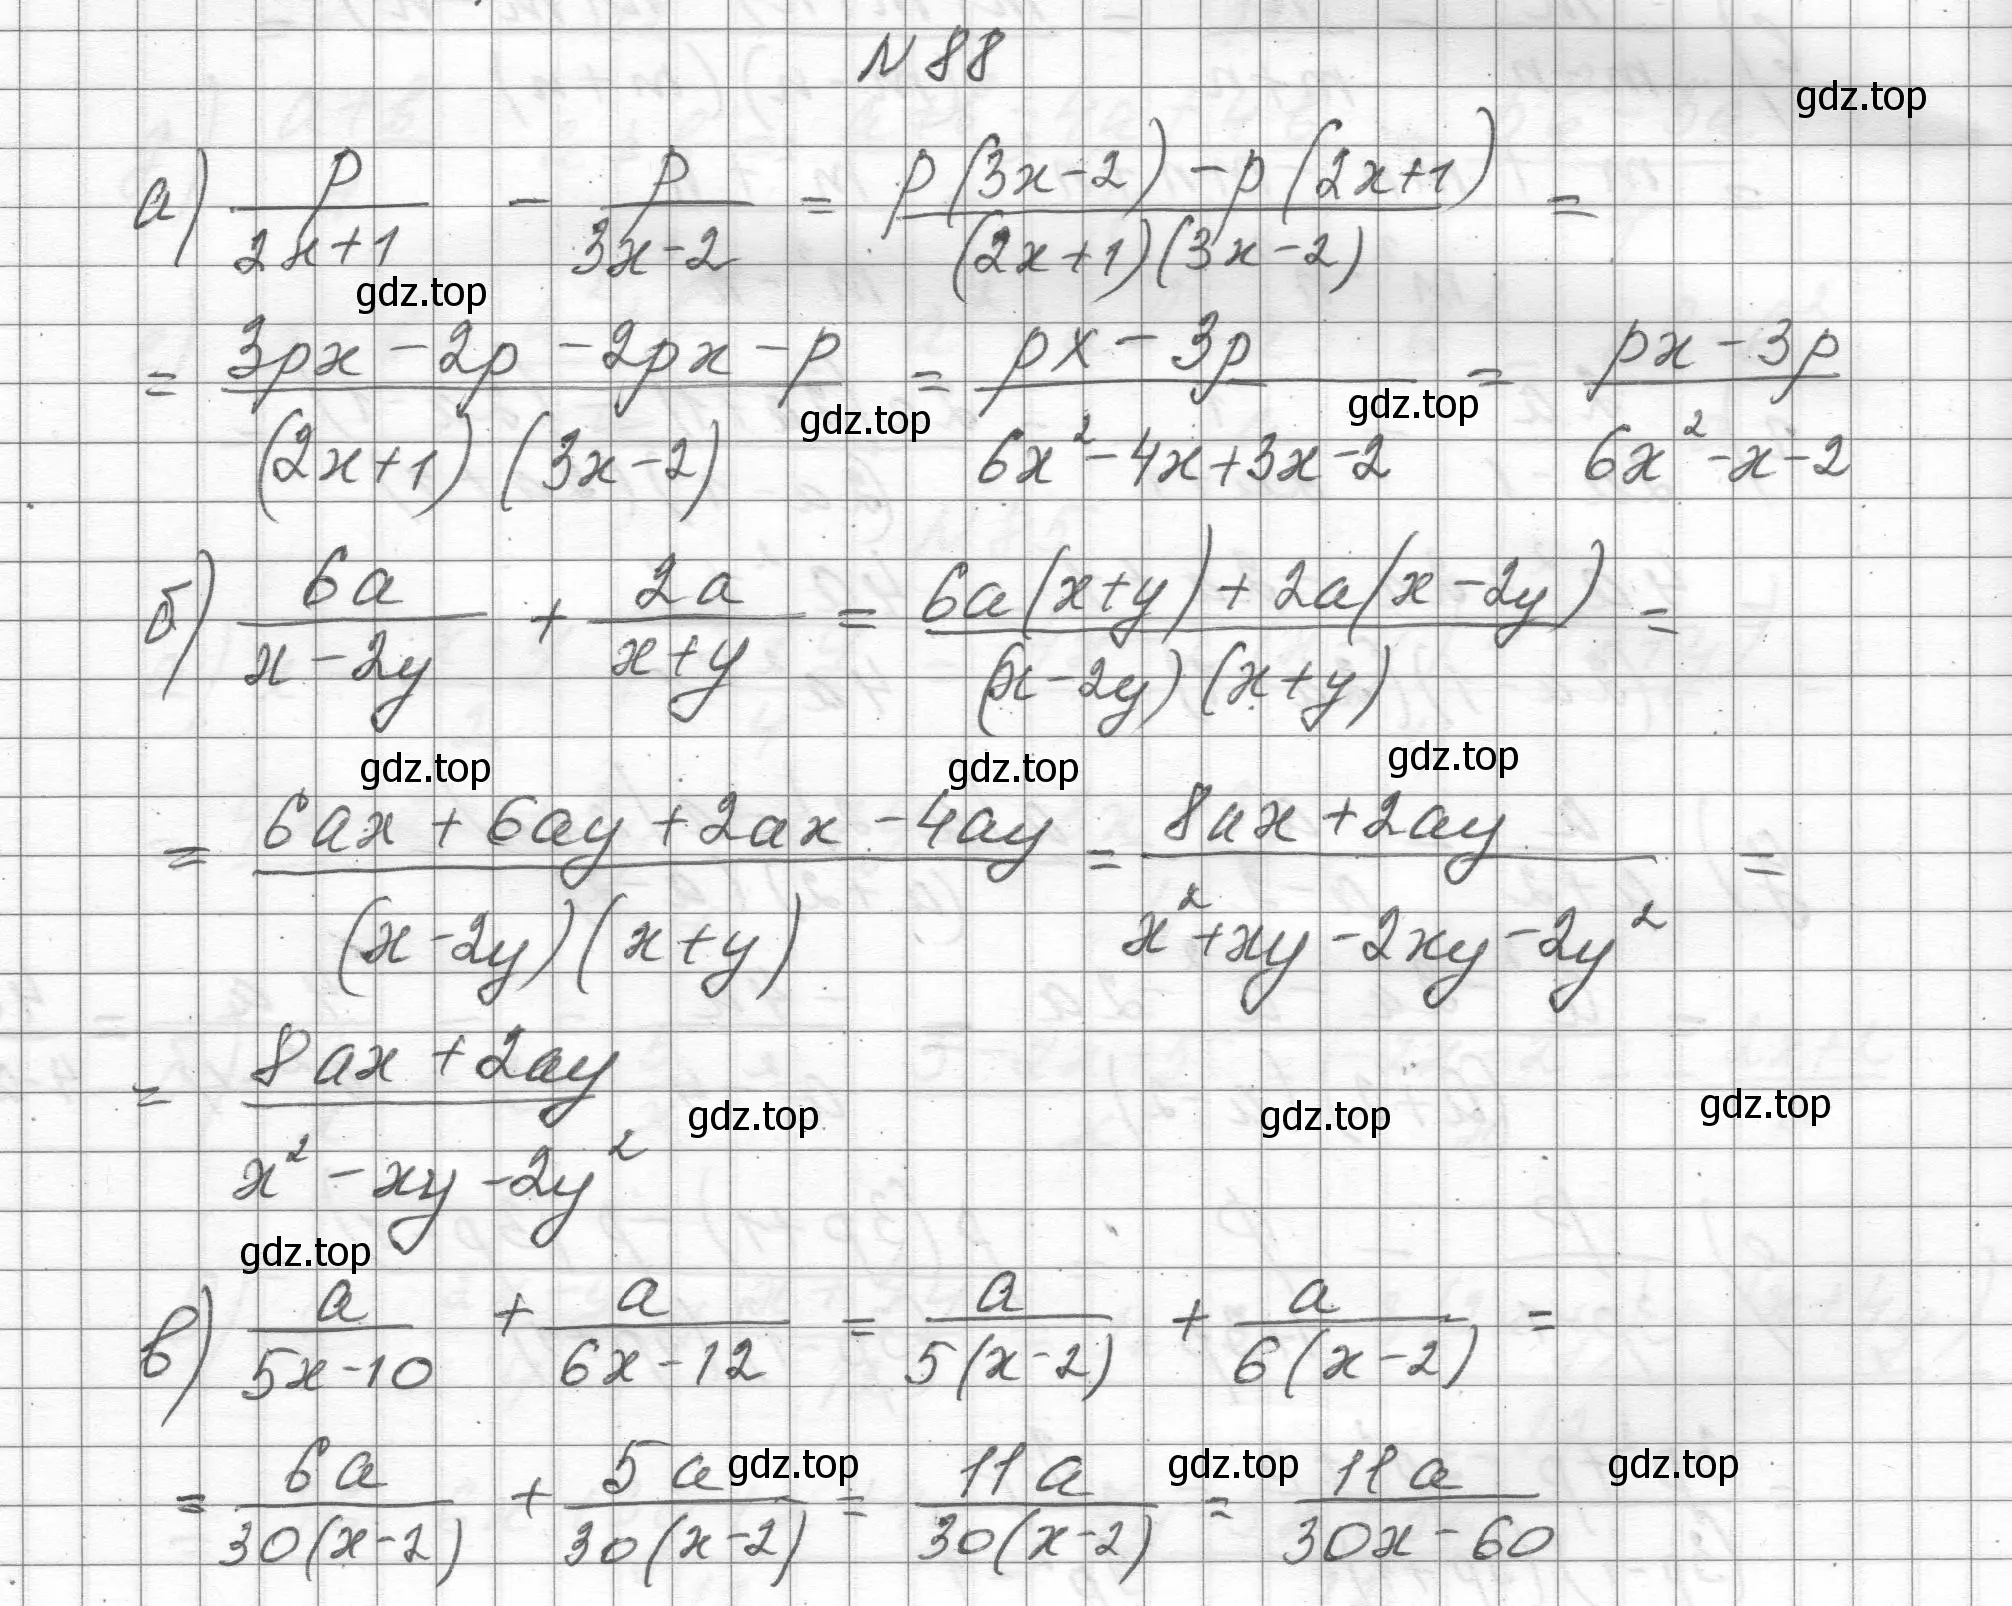 N 88
gdz.top
а) p/(2x+1) - p/(3x-2) = (p(3x-2)-p(2x+1))/((2x+1)(3x-2)) =
gdz.top
= (3px-2p-2px-p)/((2x+1)(3x-2)) = (px-3p)/(6x²-4x+3x-2) = (px-3p)/(6x²-x-2)
gdz.top gdz.top
б) 6a/(x-2y) + 2a/(x+y) = (6a(x+y)+2a(x-2y))/((x-2y)(x+y)) =
gdz.top gdz.top gdz.top
= (6ax+6ay+2ax-4ay)/((x-2y)(x+y)) = (8ax+2ay)/(x²+xy-2xy-2y²) =
= (8ax+2ay)/(x²-xy-2y²)
gdz.top gdz.top gdz.top
gdz.top
в) a/(5x-10) + a/(6x-12) = a/(5(x-2)) + a/(6(x-2)) =
= 6a/(30(x-2)) + 5a/(30(x-2)) = 11a/(30(x-2)) = 11a/(30x-60)
gdz.top gdz.top gdz.top